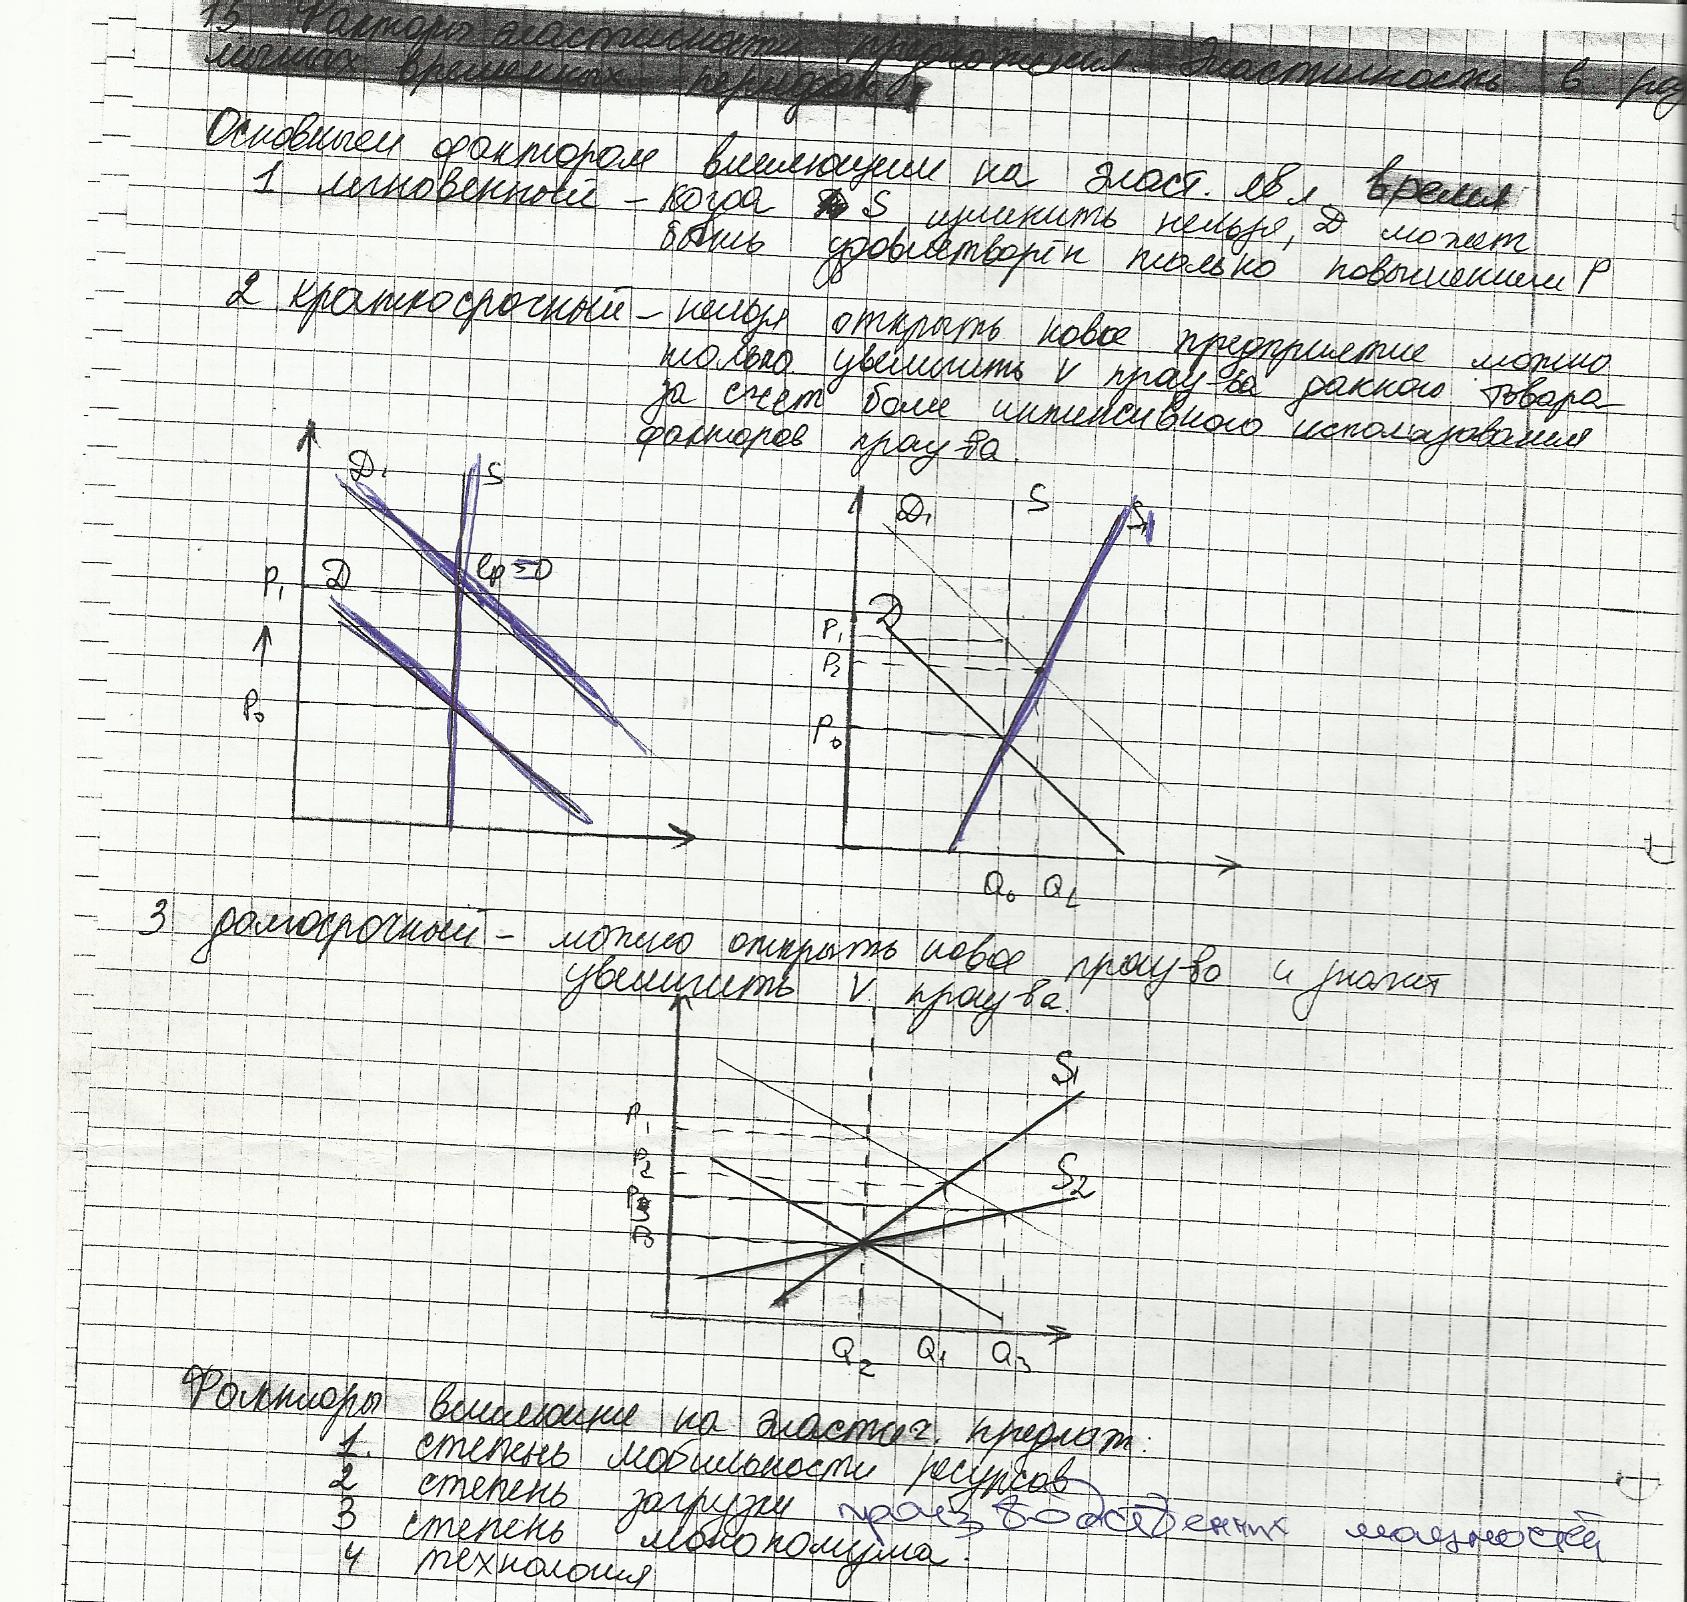 15 Факторы эластичности предложения. Эластичность в раз
личных временных периодах.
Основным фактором влияющим на эласт. явл. время
1 мгновенный – когда S изменить нельзя, D может
быть удовлетворён только повышением P
2 краткосрочный – нельзя открыть новое предприятие можно
только увеличить V произ-ва данного товара
за счет более интенсивного использования
факторов произ-ва.
D₁ S
P₁ D eₚ=0
P₀
D₁ S S₁
D
P₁
P₂
P₀
Q₀ Q₁
3 долгосрочный – можно открыть новое произ-во и значит
увеличить V произ-ва.
S₁
P₁
P₂ S₂
P₃
P₀
Q₂ Q₁ Q₃
Факторы влияющие на эластич. предлож:
1. степень мобильности ресурсов
2 степень загрузки производственных мощностей
3 степень монополизма.
4 технология